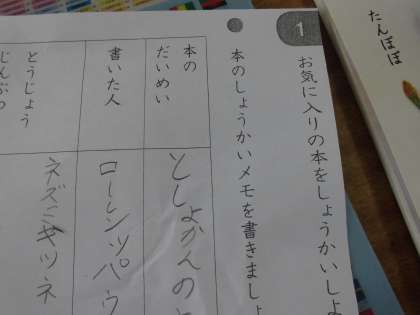 たんぽぽ
1
お気に入りの本をしょうかいしよ
本のしょうかいメモを書きましょ
本の
だいめい
としょかんの
書いた人
ローレンツパウ
とうじょう
じんぶつ
ネズミキツネ